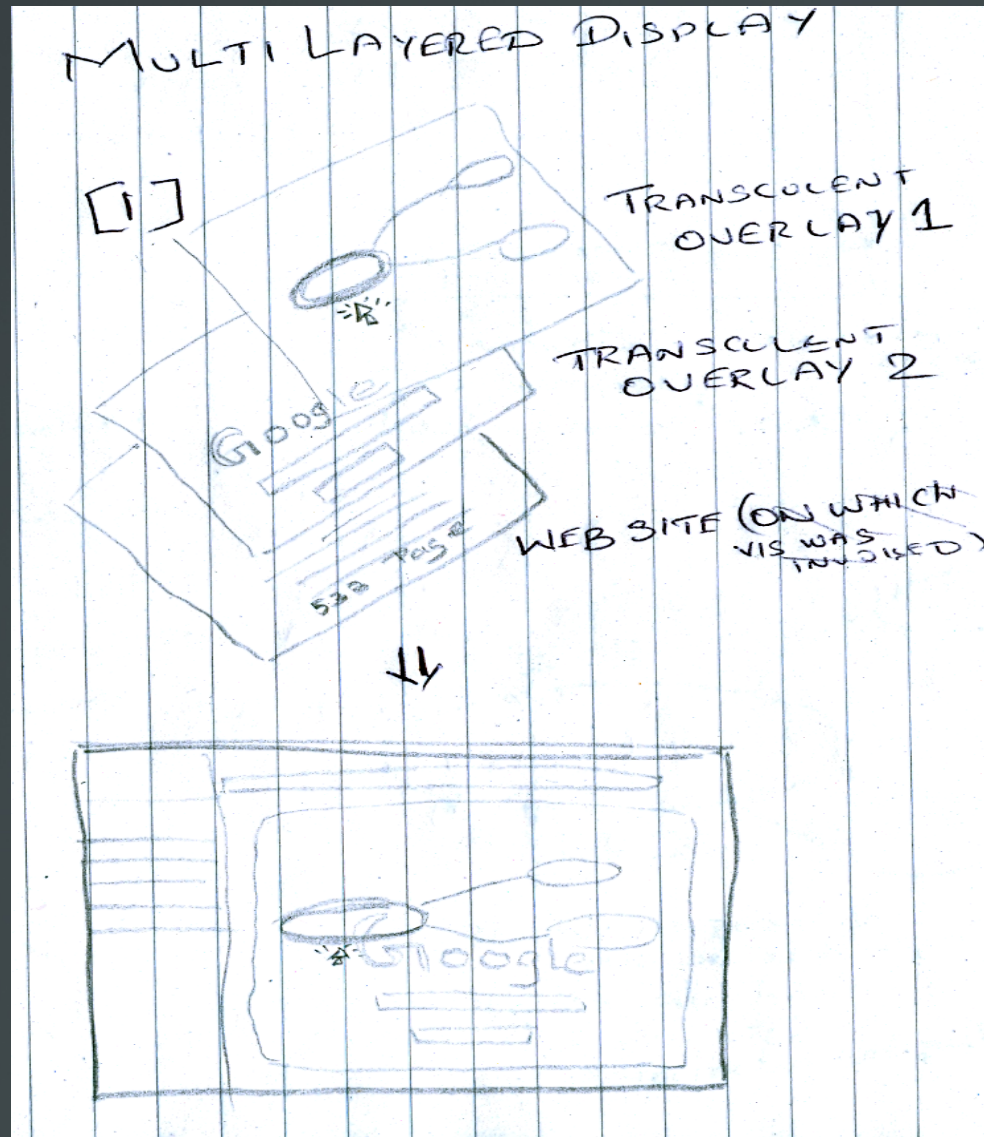 MULTI LAYERED DISPLAY
[1]
TRANSCULENT
OVERLAY 1
TRANSCULENT
OVERLAY 2
Google
WEB SITE (ON WHICH
VIS WAS
INVOKED)
Page
Google